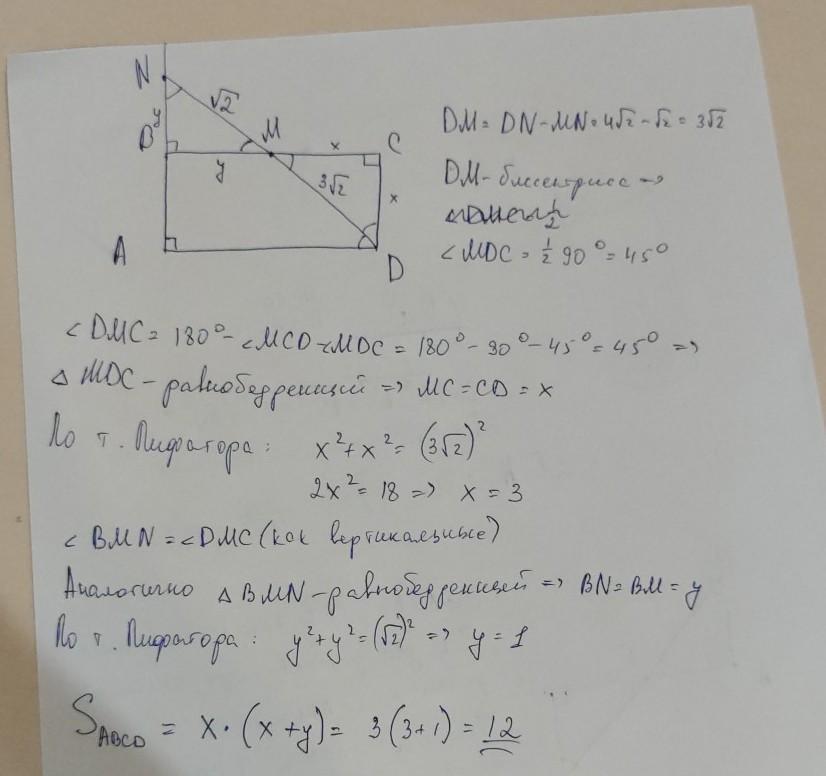 N
√2
y
B
M
x
C
y
3√2
x
A
D
DM = DN - MN = 4√2 - √2 = 3√2
DM - биссектриса =>
∠MDC = 1/2 90° = 45°
∠DMC = 180° - ∠MCD - ∠MDC = 180° - 90° - 45° = 45° =>
△ MDC - равнобедренный => MC = CD = x
По т. Пифагора: x² + x² = (3√2)²
2x² = 18 => x = 3
∠ BMN = ∠DMC (как вертикальные)
Аналогично △ BMN - равнобедренный => BN = BM = y
По т. Пифагора: y² + y² = (√2)² => y = 1
S ABCD = x · (x + y) = 3(3+1) = 12